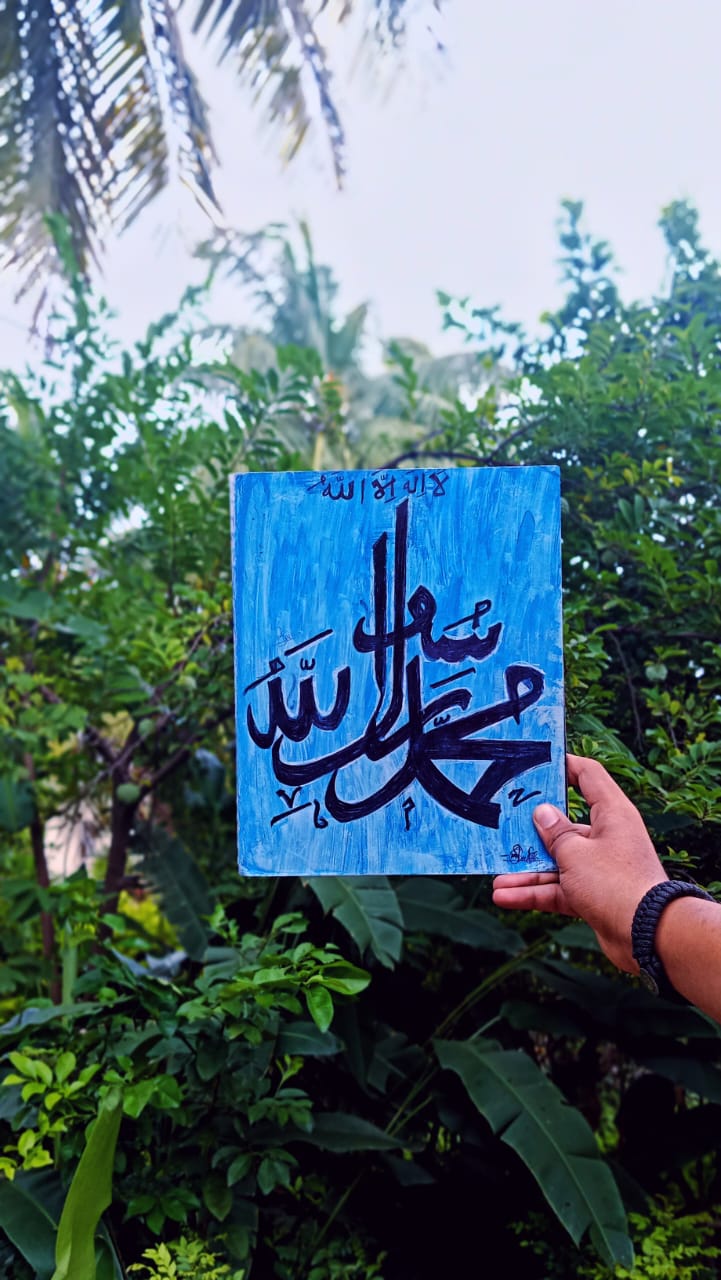 لا إله إلّا اللّه
محمد رسول اللّه